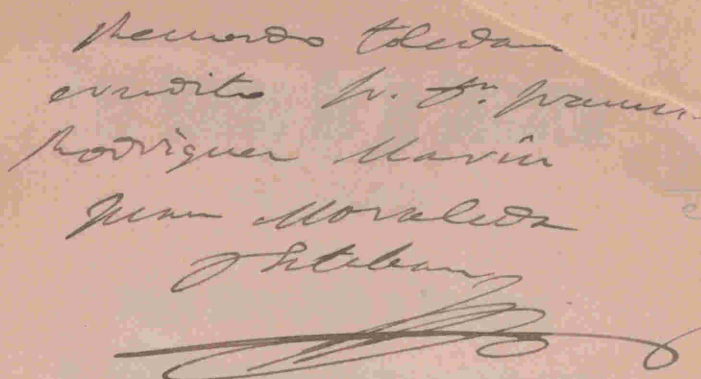 Recuerdo toledano
erudito Sr. Dn. Francisco
Rodriguez Marín
Juan Moraleda
y Esteban